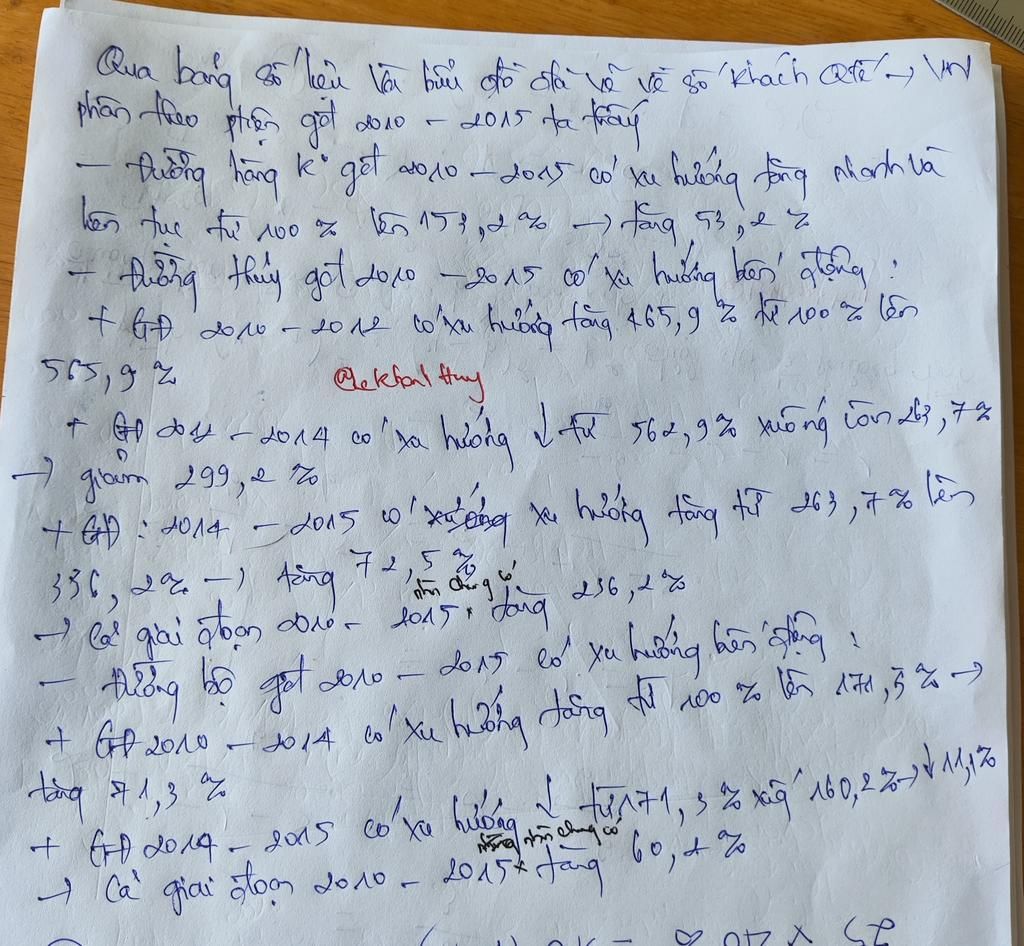 Qua bảng số liệu và biểu đồ đã vẽ về số khách Qtế → VN
phân theo ptiện gđt 2010 - 2015 ta thấy
- Đường hàng k° gđt 2010 - 2015 có xu hướng tăng nhanh và
liên tục từ 100 % lên 153,2 % → tăng 53,2 %
- Đường thủy gđt 2010 - 2015 có xu hướng biến động :
+ GĐ 2010 - 2012 có xu hướng tăng 465,9 % từ 100 % lên
565,9 %
+ GĐ 2012 - 2014 có xu hướng ↓ từ 562,9 % xuống còn 263,7 %
→ giảm 299,2 %
+ GĐ : 2014 - 2015 có xu hướng tăng từ 263,7 % lên
336,2 % → tăng 72,5 %
nhìn chung có
→ Cả giai đoạn 2010 - 2015 * tăng 236,2 %
- Đường bộ gđt 2010 - 2015 có xu hướng biến động :
+ GĐ 2010 - 2014 có xu hướng tăng từ 100 % lên 171,3 % →
tăng 71,3 %
+ GĐ 2014 - 2015 có xu hướng ↓ từ 171,3 % xuống 160,2 % → ↓ 11,1 %
nhìn chung có
→ Cả giai đoạn 2010 - 2015 * tăng 60,2 %